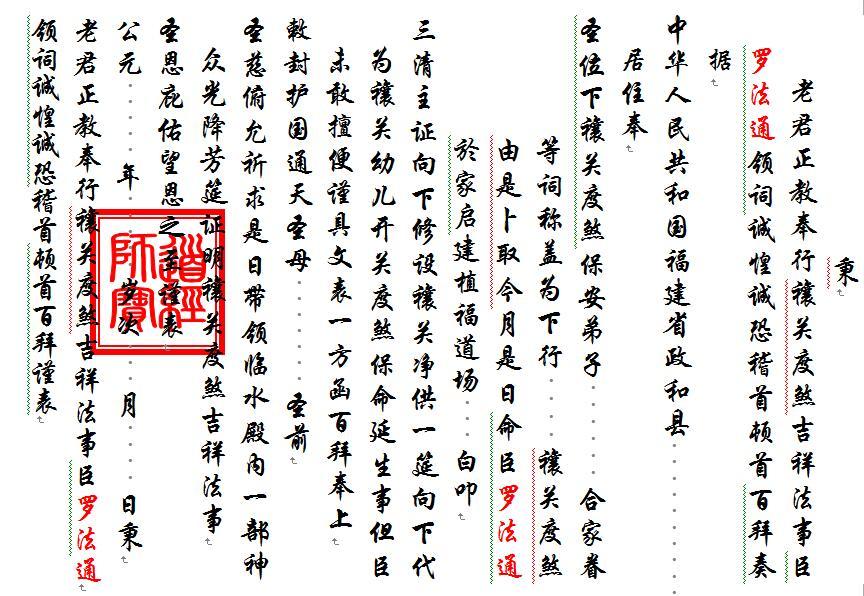 秉
老君正教奉行禳关度煞吉祥法事臣
罗法通领词诚惶诚恐稽首顿首百拜奏
据
中华人民共和国福建省政和县......
居住奉
圣位下禳关度煞保安弟子.....合家眷
等词称盖为下行....禳关度煞
由是卜取今月是日命臣罗法通
於家启建植福道场...白叩
三清主证向下修设禳关净供一筵向下代
为禳关幼儿开关度煞保命延生事但臣
未敢擅便谨具文表一方函百拜奉上
敕封护国通天圣母......圣前
圣慈俯允祈求是日带领临水殿内一部神
众光降芳筵证明禳关度煞吉祥法事
圣恩庇佑望恩之至谨表
公元....年....岁次...月....日秉
老君正教奉行禳关度煞吉祥法事臣罗法通
领词诚惶诚恐稽首顿首百拜谨表
道經
師寶